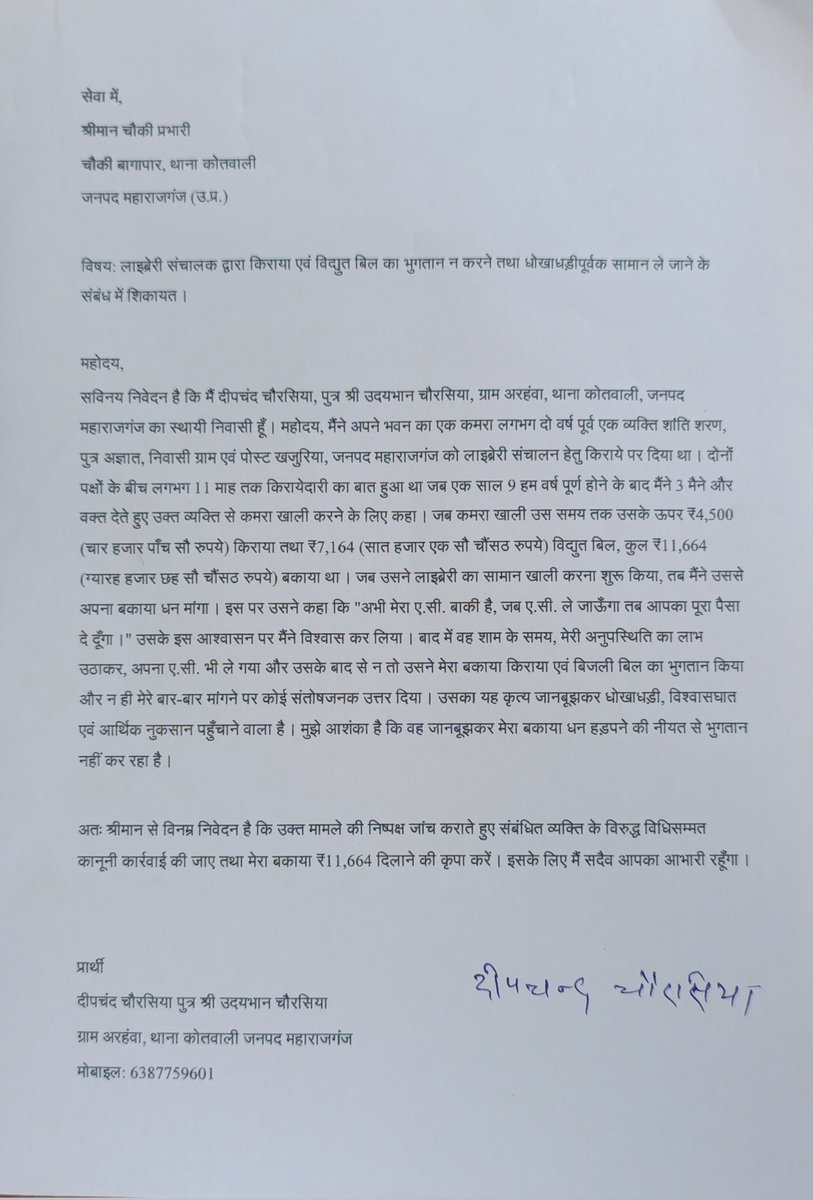 सेवा में,
श्रीमान चौकी प्रभारी
चौकी बागापार, थाना कोतवाली
जनपद महाराजगंज (उ.प्र.)
विषय: लाइब्रेरी संचालक द्वारा किराया एवं विद्युत बिल का भुगतान न करने तथा धोखाधड़ीपूर्वक सामान ले जाने के
संबंध में शिकायत।
महोदय,
सविनय निवेदन है कि मैं दीपचंद चौरसिया, पुत्र श्री उदयभान चौरसिया, ग्राम अरहंवा, थाना कोतवाली, जनपद
महाराजगंज का स्थायी निवासी हूँ। महोदय, मैंने अपने भवन का एक कमरा लगभग दो वर्ष पूर्व एक व्यक्ति शांति शरण,
पुत्र अज्ञात, निवासी ग्राम एवं पोस्ट खजुरिया, जनपद महाराजगंज को लाइब्रेरी संचालन हेतु किराये पर दिया था। दोनों
पक्षों के बीच लगभग 11 माह तक किरायेदारी का बात हुआ था जब एक साल 9 हम वर्ष पूर्ण होने के बाद मैंने 3 मैने और
वक्त देते हुए उक्त व्यक्ति से कमरा खाली करने के लिए कहा। जब कमरा खाली उस समय तक उसके ऊपर ₹4,500
(चार हजार पाँच सौ रुपये) किराया तथा ₹7,164 (सात हजार एक सौ चौंसठ रुपये) विद्युत बिल, कुल ₹11,664
(ग्यारह हजार छह सौ चौंसठ रुपये) बकाया था। जब उसने लाइब्रेरी का सामान खाली करना शुरू किया, तब मैंने उससे
अपना बकाया धन मांगा। इस पर उसने कहा कि "अभी मेरा ए.सी. बाकी है, जब ए.सी. ले जाऊँगा तब आपका पूरा पैसा
दे दूँगा।" उसके इस आश्वासन पर मैंने विश्वास कर लिया। बाद में वह शाम के समय, मेरी अनुपस्थिति का लाभ
उठाकर, अपना ए.सी. भी ले गया और उसके बाद से न तो उसने मेरा बकाया किराया एवं बिजली बिल का भुगतान किया
और न ही मेरे बार-बार मांगने पर कोई संतोषजनक उत्तर दिया। उसका यह कृत्य जानबूझकर धोखाधड़ी, विश्वासघात
एवं आर्थिक नुकसान पहुँचाने वाला है। मुझे आशंका है कि वह जानबूझकर मेरा बकाया धन हड़पने की नीयत से भुगतान
नहीं कर रहा है।
अतः श्रीमान से विनम्र निवेदन है कि उक्त मामले की निष्पक्ष जांच कराते हुए संबंधित व्यक्ति के विरुद्ध विधिसम्मत
कानूनी कार्रवाई की जाए तथा मेरा बकाया ₹11,664 दिलाने की कृपा करें। इसके लिए मैं सदैव आपका आभारी रहूँगा।
प्रार्थी
दीपचन्द चौरासिया
दीपचंद चौरसिया पुत्र श्री उदयभान चौरसिया
ग्राम अरहंवा, थाना कोतवाली जनपद महाराजगंज
मोबाइल: 6387759601